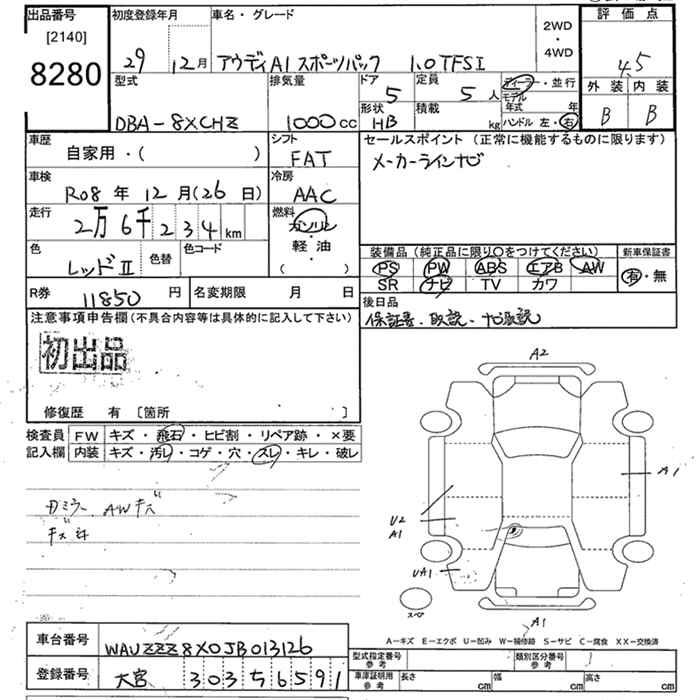 出品番号 初度登録年月 車名・グレード 評価点
[2140] 2WD
8280 29 12月 アウディA1スポーツバック 1.0TFSI ・ 4.5
4WD
型式 排気量 ドア 定員 ディーラー・並行 外装 内装
5 5人 モデル
DBA-8XCHZ 1000cc 形状 積載 年式 年 B B
HB kg ハンドル 左・右
車歴 シフト セールスポイント(正常に機能するものに限ります)
自家用・( ) FAT メーカーラインナビ
車検 冷房
R08年12月(26日) AAC
走行 燃料
2万6千234km ガソリン
・
色 色替 色コード 軽油 装備品(純正品に限り○をつけてください) 新車保証書
レッドII ・ PS PW ABS エアB AW 有・無
( ) SR ナビ TV カワ
R券 11850円 名変期限 月 日 後日品
保証書、取説、ナビ取説
注意事項申告欄(不具合内容等は具体的に記入して下さい)
初出品
修復歴 有 [箇所 ]
検査員 FW キズ・飛石・ヒビ割・リペア跡・×要
記入欄 内装 キズ・汚レ・コゲ・穴・スレ・キレ・破レ
A2
A1
AWキズ
U2
A1
UA1
A1
A-キズ E-エクボ U-凹み W-補修跡 S-サビ C-腐食 XX-交換済
車台番号 WAUZZZ8X0JB013126 型式指定番号 類別区分番号
参考 参考
登録番号 大宮 303 5 6591 車庫証明用 長さ 幅 高さ
参考 cm cm cm